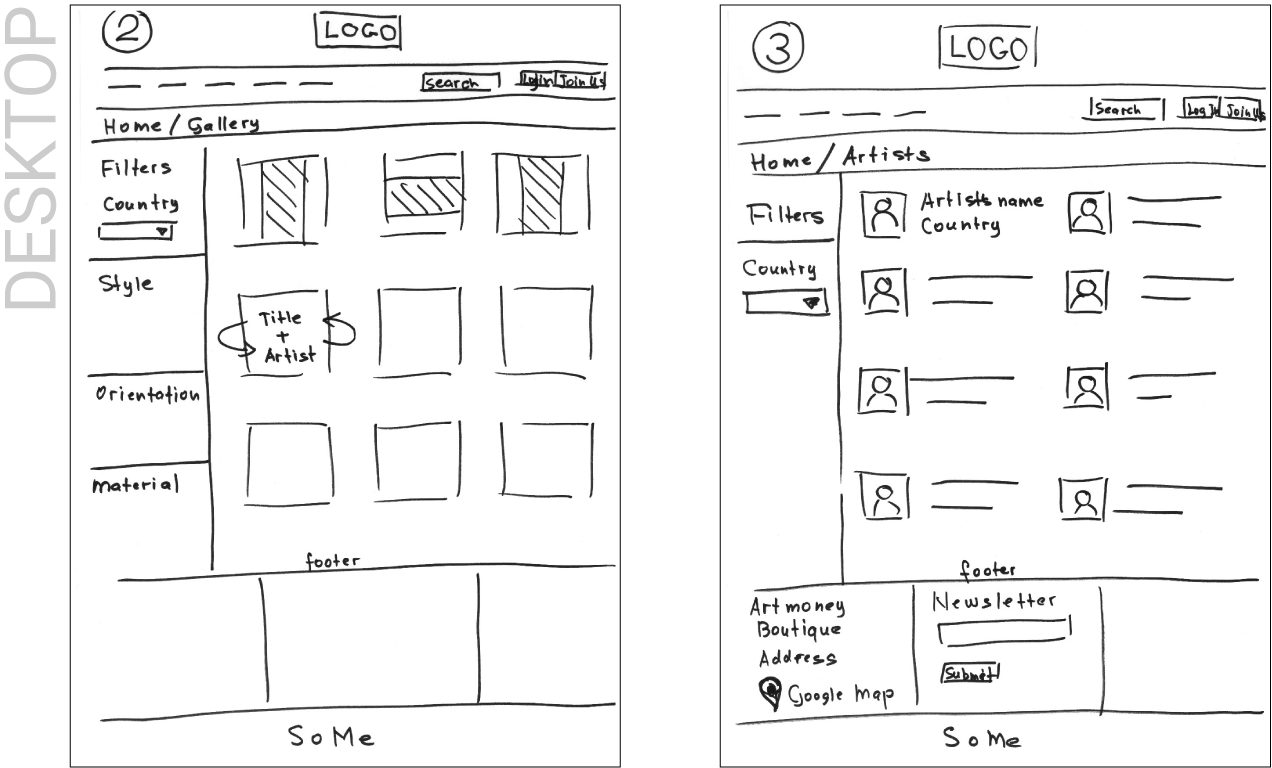 DESKTOP
2
LOGO
Search
Login
Join Us
Home / Gallery
Filters
Country
Style
Orientation
Material
Title
+
Artist
footer
SoMe
3
LOGO
Search
Log In
Join Us
Home / Artists
Filters
Country
Artists name
Country
footer
Art money
Boutique
Address
Google Map
Newsletter
Submit
SoMe